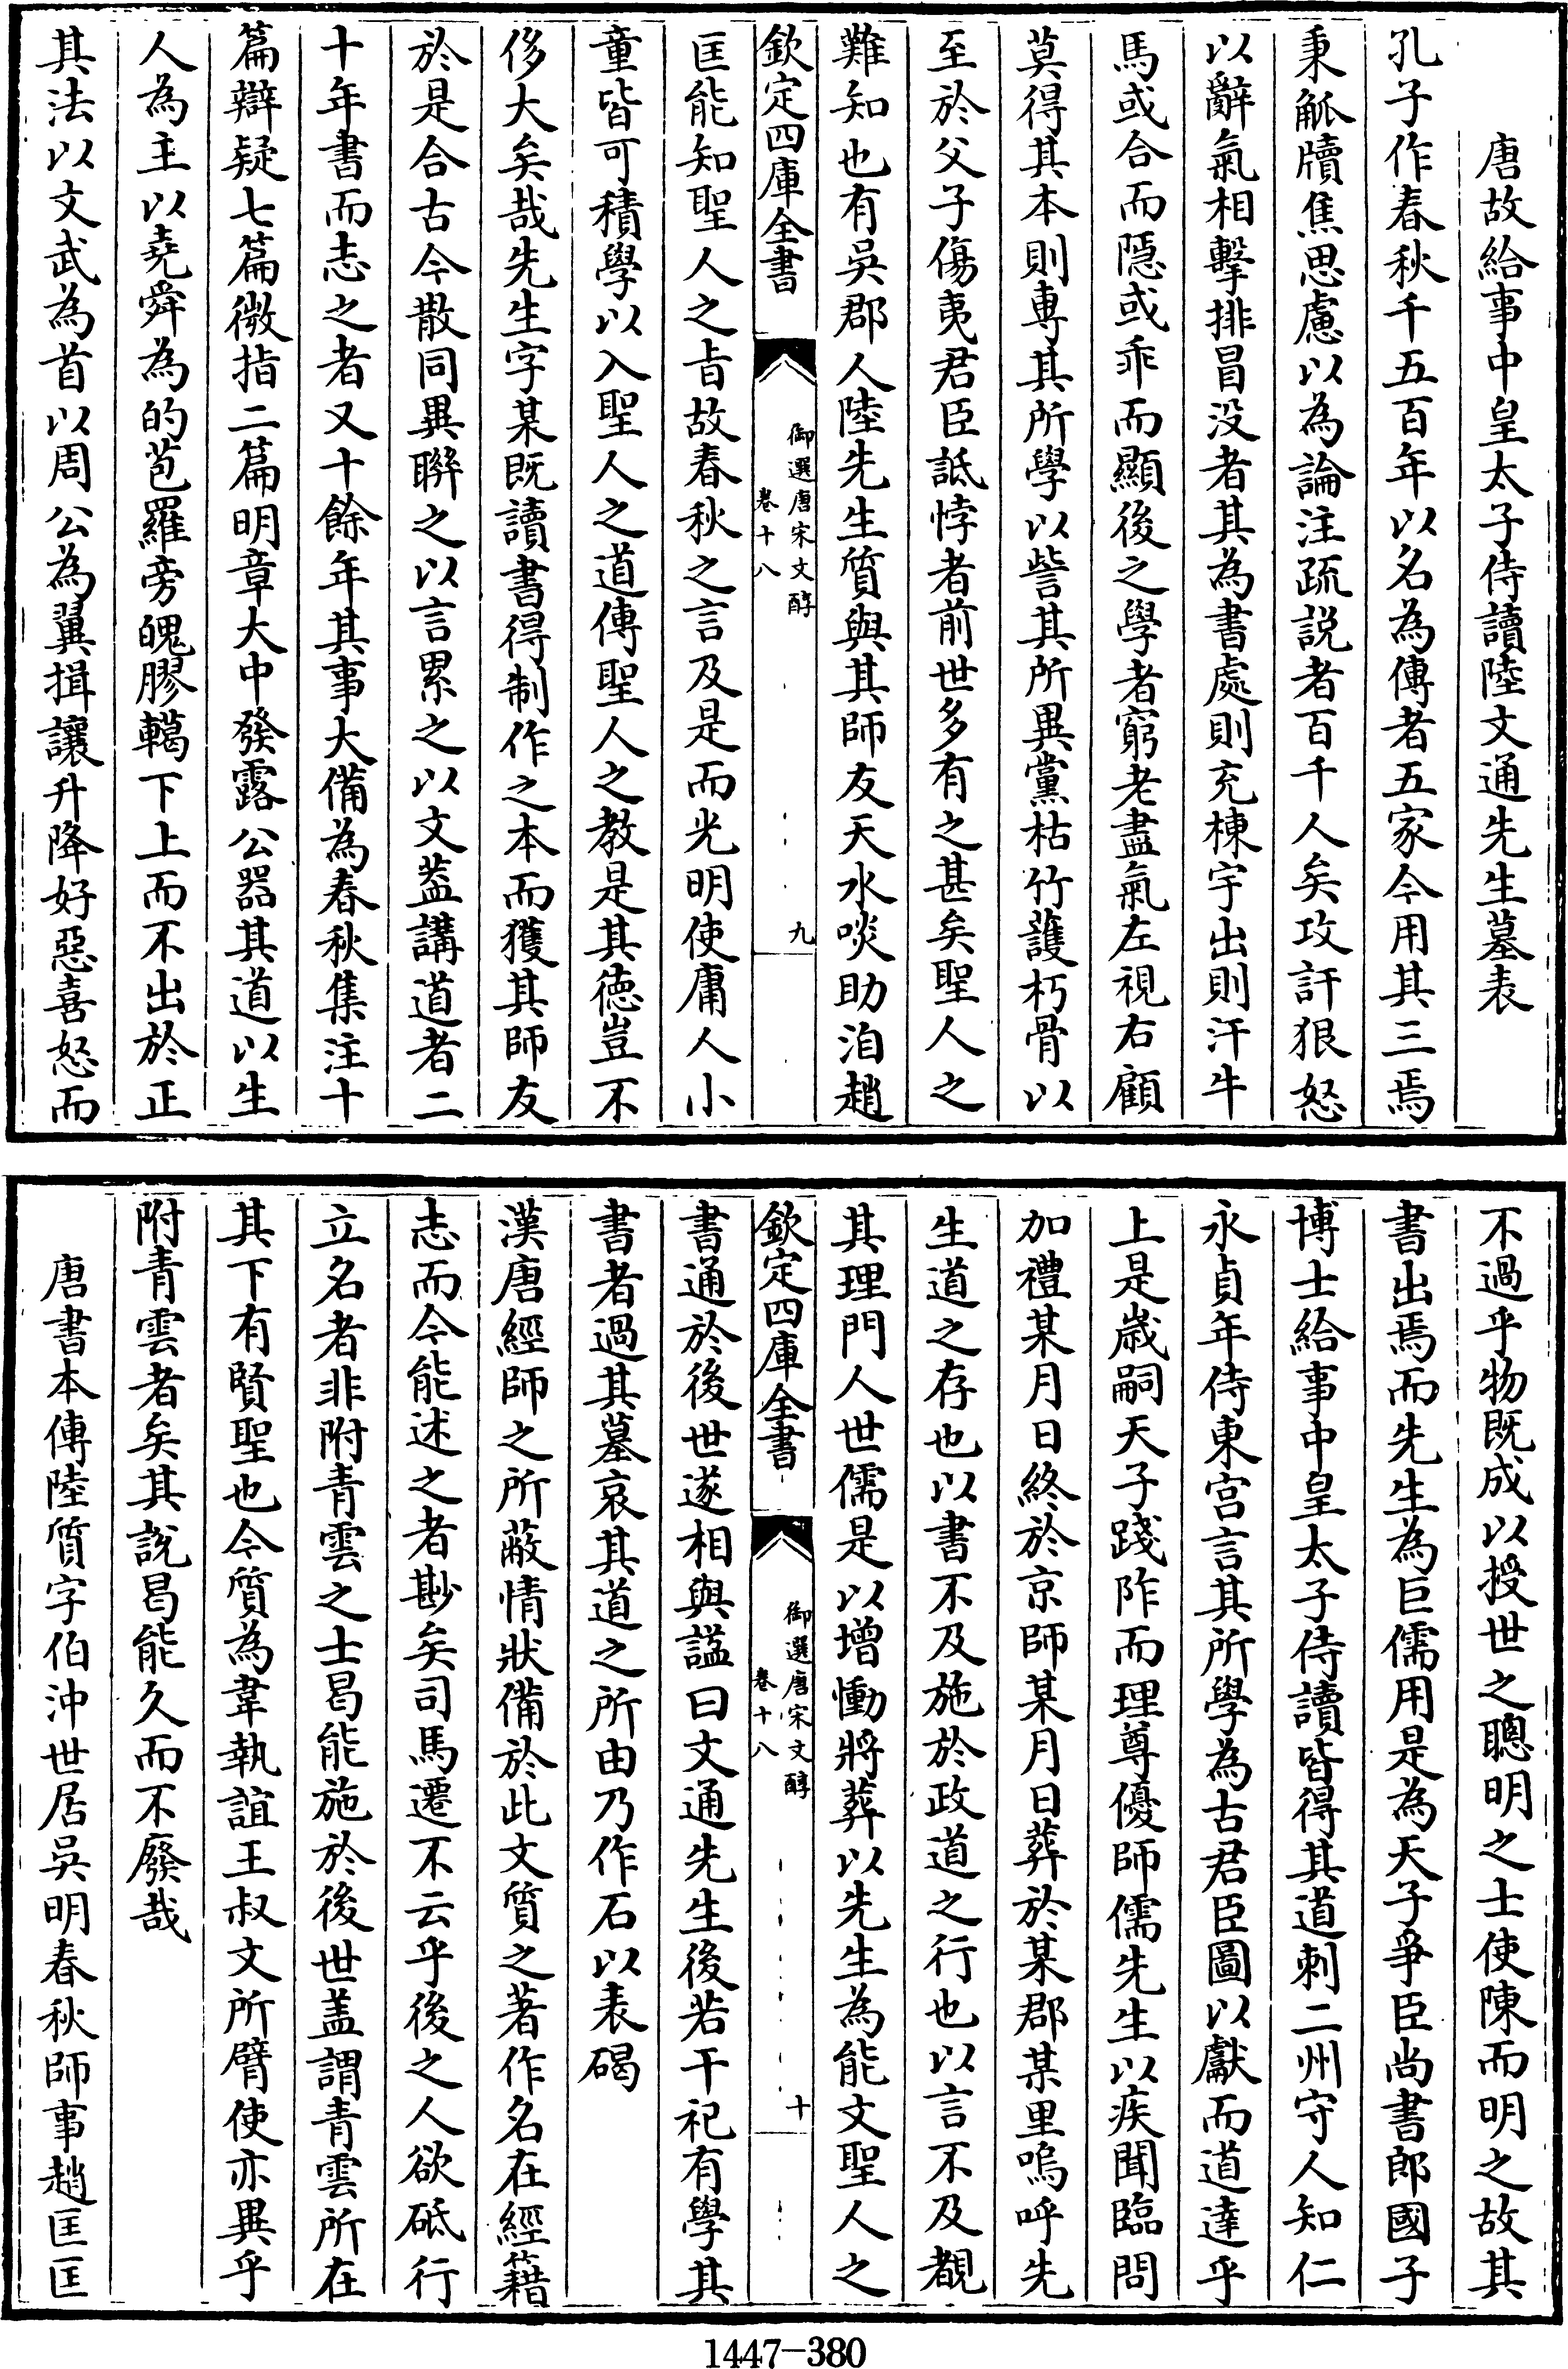 唐故給事中皇太子侍讀陸文通先生墓表
孔子作春秋千五百年以名為傳者五家今用其三焉
秉觚牘焦思慮以為論注疏説者百千人矣攻訐狠怒
以辭氣相擊排冒没者其為書處則充棟宇出則汗牛
馬或合而隱或乖而顯後之學者窮老盡氣左視右顧
莫得其本則專其所學以訾其所異黨枯竹護朽骨以
至於父子傷夷君臣詆悖者前世多有之甚矣聖人之
難知也有吳郡人陸先生質與其師友天水啖助洎趙
欽定四庫全書
御選唐宋文醇
卷十八
九
匡能知聖人之㫖故春秋之言及是而光明使庸人小
童皆可積學以入聖人之道傳聖人之教是其徳豈不
侈大矣哉先生字某既讀書得制作之本而獲其師友
於是合古今散同異聨之以言累之以文葢講道者二
十年書而志之者又十餘年其事大備為春秋集注十
篇辯疑七篇微指二篇明章大中發露公器其道以生
人為主以堯舜為的苞羅旁魄膠轕下上而不出於正
其法以文武為首以周公為翼揖讓升降好惡喜怒而
不過乎物既成以授世之聰明之士使陳而明之故其
書出焉而先生為巨儒用是為天子爭臣尚書郎國子
博士給事中皇太子侍讀皆得其道刺二州守人知仁
永貞年侍東宫言其所學為古君臣圖以獻而道達乎
上是歳嗣天子踐阼而理尊優師儒先生以疾聞臨問
加禮某月日終於京師某月日葬於某郡某里嗚呼先
生道之存也以書不及施於政道之行也以言不及覩
其理門人世儒是以增慟將葬以先生為能文聖人之
欽定四庫全書
御選唐宋文醇
卷十八
十
書通於後世遂相與諡曰文通先生後若干祀有學其
書者過其墓哀其道之所由乃作石以表碣
漢唐經師之所蔽情狀備於此文質之著作名在經籍
志而今能述之者尠矣司馬遷不云乎後之人欲砥行
立名者非附青雲之士曷能施於後世盖謂青雲所在
其下有賢聖也今質為韋執誼王叔文所臂使亦異乎
附青雲者矣其説曷能久而不廢哉
唐書本傳陸質字伯沖世居吳明春秋師事趙匡匡
1447-380